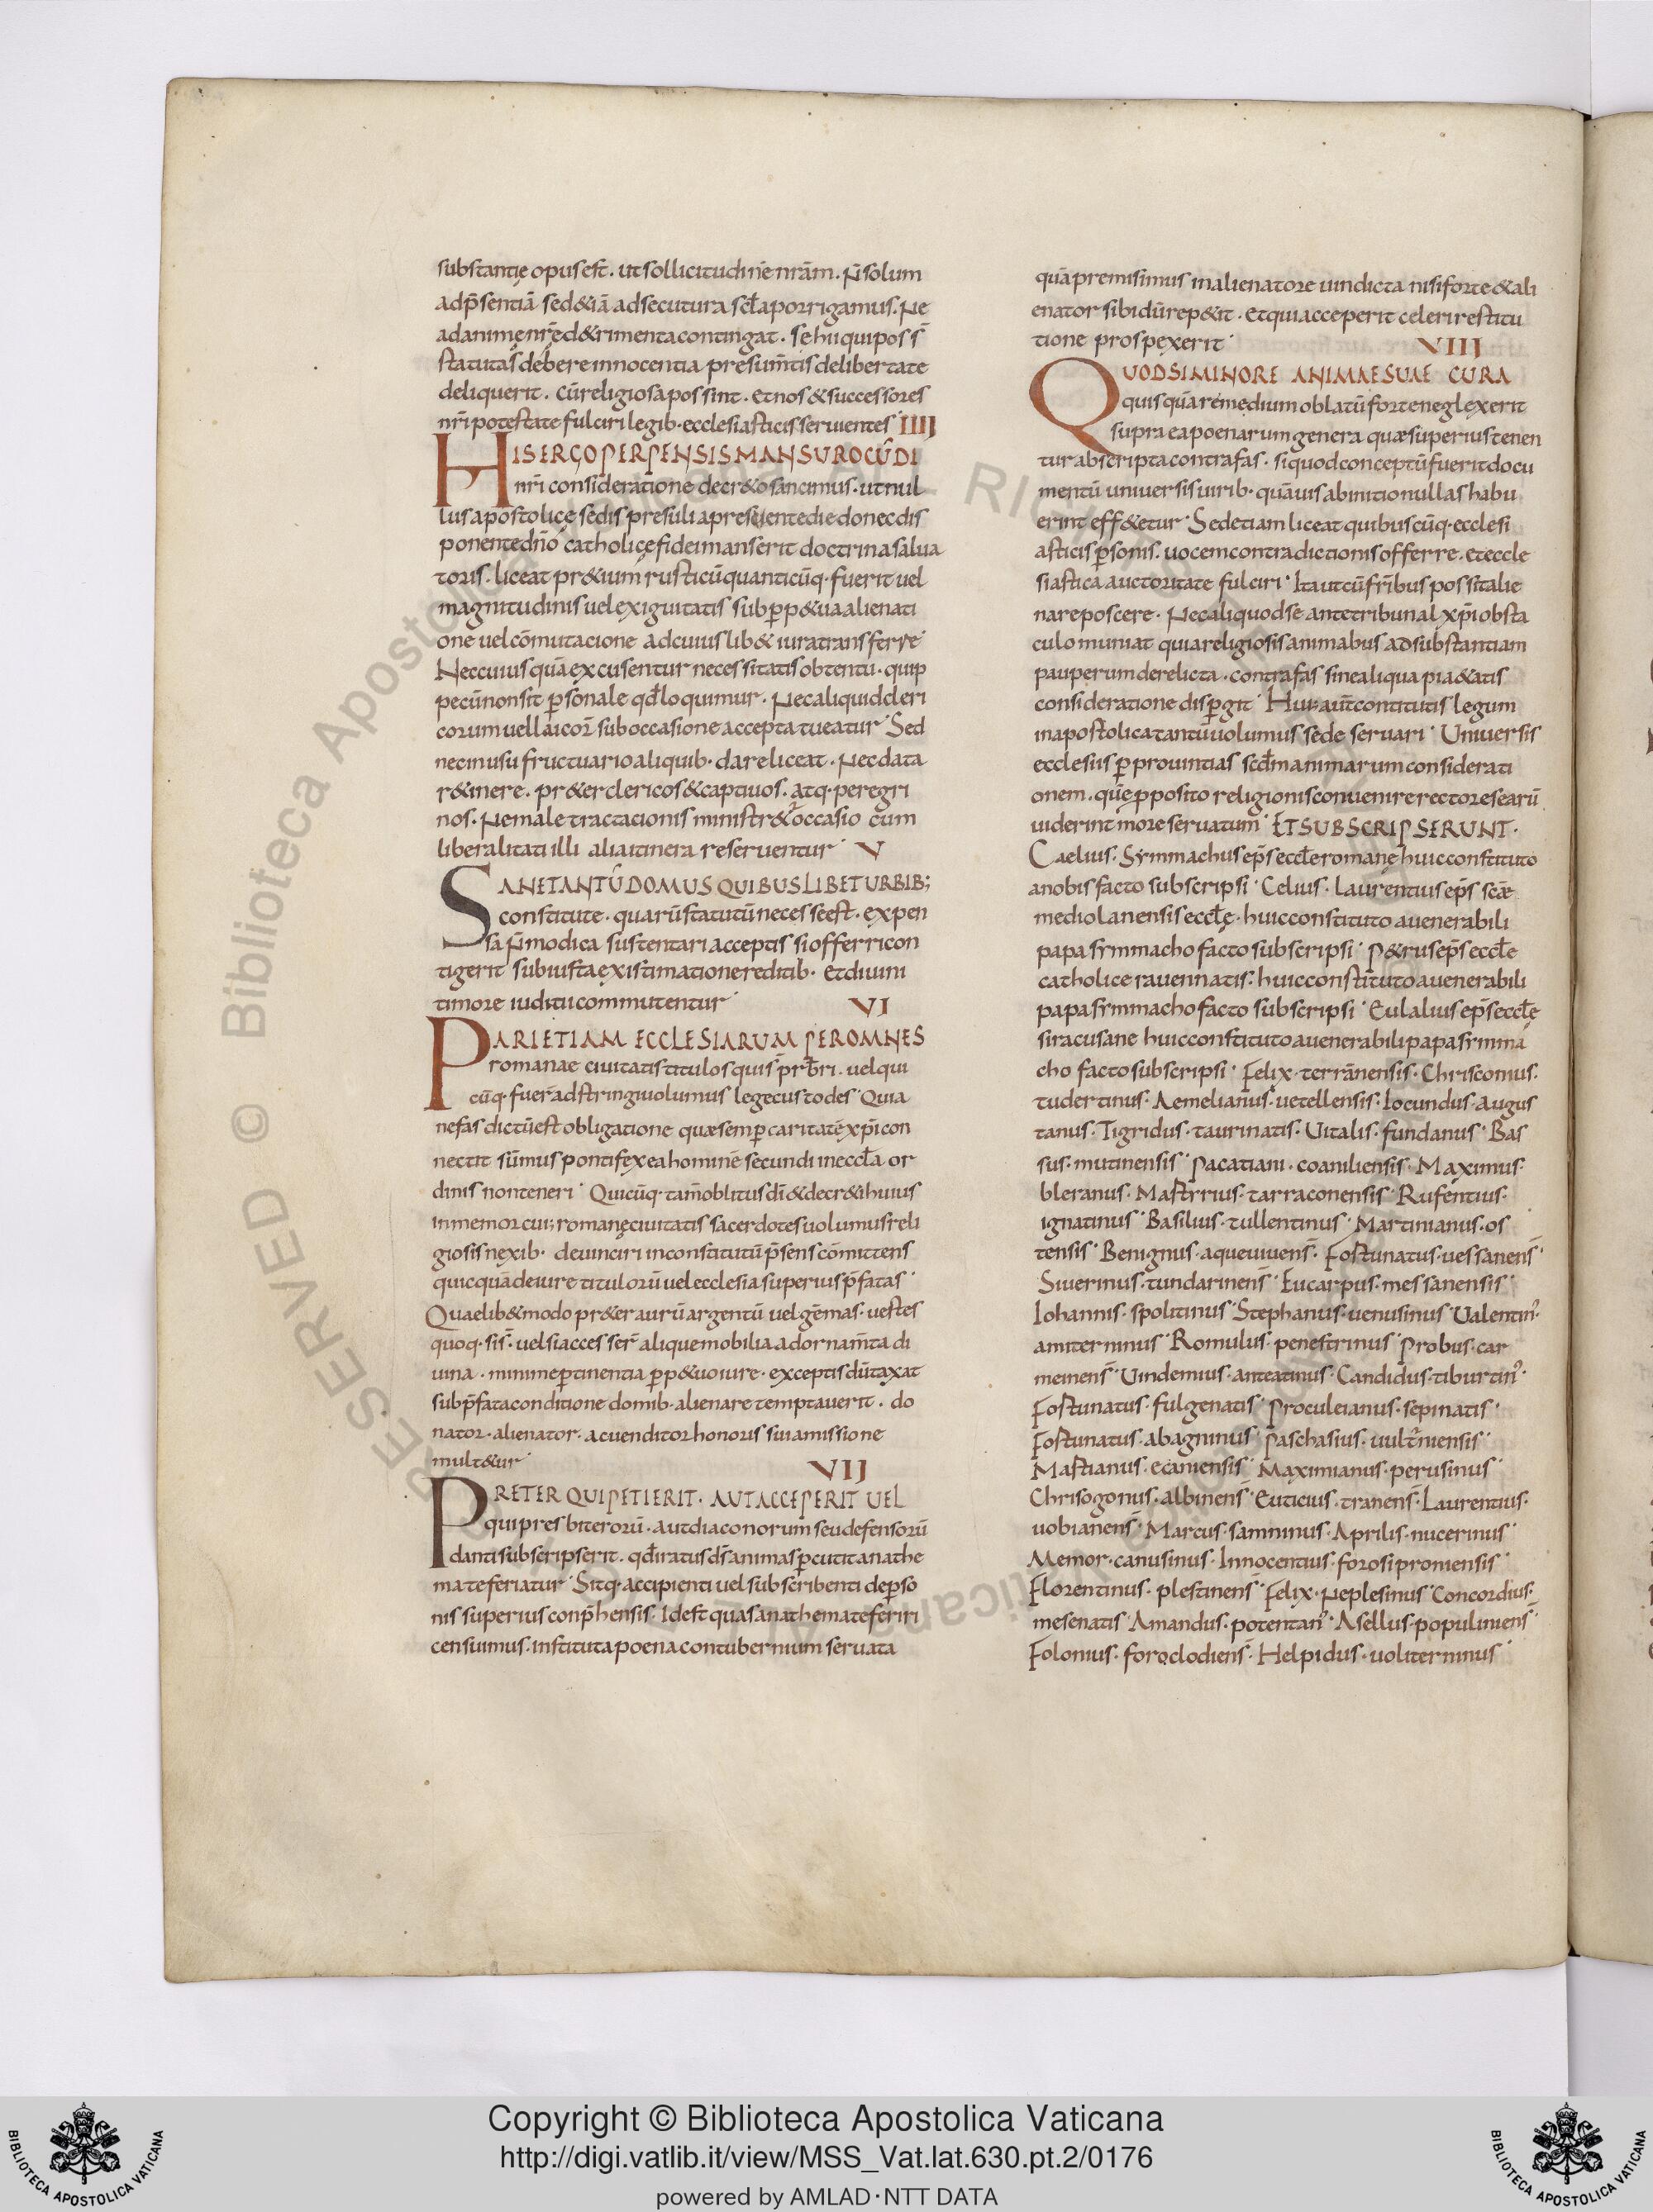 substantię opus est. ut sollicitudinē nrām. n̄ solum
ad p̄sentiā sed & iā ad secutura sc̄la porrigamus. Ne
ad animę nr̄ę d&rimenta contingat. se hii qui poss̄
statutas debere innocentia presum̄tis de libertate
deliquerit. cū religiosa possint. et nos & successores
nr̄i potestate fulciri legib. ecclesiasticis seruientes IIIJ
HIS ERGO PERPENSIS MANSURO CŪ DI
nr̄i consideratione decr&o sancimus. ut nul
lus apostolicę sedis presuli a presente die donec dis
ponente dn̄o catholicę fidei manserit doctrina salua
toris. liceat predium rusticū quanticūq. fuerit uel
magnitudinis uel exiguitatis sub ꝑp&ua alienati
one uel cōmutacione ad cuius lib& iura transferre
Nec cuiusquā excusentur necessitatis obtentu. quip
pe cū non sit ꝑsonale qd̄ loquimur. Nec aliquid cleri
corum uel laicor̄ sub occasione accepta tueatur Sed
nec in usu fructuario aliquib. dare liceat. Nec data
r&inere. pr&er clericos & captiuos. atq. peregri
nos. Ne male tractacionis ministr&r occasio cum
liberalitati illi alia itinera reseruentur V
SANE TANTŪ DOMUS QUIBUSLIBET URBIB;
constitute. quarū statutū necesse est. expen
sa n̄ modica sustentari acceptis si offerri con
tigerit sub iusta existimatione reditib. et diuini
timore iuditii commutentur VI
PARI ETIAM ECCLESIARUM PER OMNES
romanae ciuitatis titulos qui s̄ pr̄bri. uel qui
cūq. fuer̄ adstringi uolumus lege custodes Quia
nefas dictū est obligatione quae semꝑ caritatē xp̄i con
nectit sūmus pontifex ea hominē secundi in eccl̄a or
dinis non teneri Quicūq. tam̄ oblitus dī & decr&i huius
inmemor cui; romanę ciuitatis sacerdotes uolumus reli
giosis nexib. deuinciri in constitutū p̄sens cōmittens
quicquā de iure titulorū uel ecclesia superius p̄fatas
Quaelib& modo pr&er aurū argentū uel gēmas. uestes
quoq. si s̄. uel si accesser̄ alique mobilia ad ornam̄ta di
uina. minime ꝑtinentia ꝑp&uo iure. exceptis dūtaxat
sub p̄fata conditione domib. alienare temptauerit. do
nator. alienator. ac uenditor honoris sui amissione
mult&ur VIJ
PRETER QUI PETIERIT. AUT ACCEPERIT UEL
qui presbiterorū. aut diaconorum seu defensorū
danti subscripserit. qd̄ iratus ds̄ animas ꝑcutit anathe
mate feriatur Sitq. accipienti uel subscribenti de ꝑso
nis superius conp̄hensis. Id est quas anathemate feriri
censuimus. instituta poena contubernium seruata
quā premisimus in alienatore uindicta nisi forte & ali
enator sibi dū rep&it. et qui acceperit celeri restitu
tione prospexerit VIII
QUOD SI MINORE ANIMAE SUAE CURA
quisquā remedium oblatū forte neglexerit
supra ea poenarum genera quae superius tenen
tur abscripta contra fas. si quod conceptū fuerit docu
mentū uniuersis uirib. quāuis ab initio nullas habu
erint eff&etur Sed etiam liceat quibuscūq. ecclesi
asticis ꝑsonis. uocem contradictionis offerre. et eccle
siastica auctoritate fulciri Ita ut cū frībus possit alie
na reposcere. Nec aliquod se ante tribunal xp̄i obsta
culo muniat quia religiosis animabus ad substantiam
pauperum derelicta. contra fas sine aliqua pi&atis
consideratione disꝑgit Hui; aūt contitutis legum
in apostolica tantū uolumus sede seruari Uniuersis
ecclesiis ꝑ prouintias scd̄m animarum considerati
onem. quē ꝓposito religionis conuenire rectores earū
uiderint more seruatum ET SUBSCRIPSERUNT.
Caelius. Symmachus ep̄s eccl̄e romanę huic constituto
a nobis facto subscripsi Celius. Laurentius ep̄s scāe
mediolanensis eccl̄ę. huic constituto a uenerabili
papa symmacho facto subscripsi P&rus ep̄s eccl̄e
catholice rauennatis. huic constituto a uenerabili
papa symmacho facto subscripsi Eulalius ep̄s eccl̄ę
siracusane huic constituto a uenerabili papa symma
cho facto subscripsi Felix. terrānensis. Chrisconus.
tudertinus. Aemelianus. uetellensis. Iocundus. augus
tanus. Tigridus. taurinatis. Uitalis. fundanus Bas
sus. mutinensis Pacatiani. coaniliensis. Maximus.
bleranus. Mastrrius. tarraconensis Rufentius.
ignatinus Basilius. tullentinus Martinianus. os
tensis Benignus. aqueuiuens̄. Fostunatus. uessanens̄
Siuerinus. tundarinens̄ Eucarpus. messanensis
Iohannis. spolitinus Stephanus. uenusinus Ualentin.
amiterninus Romulus. penestrinus Probus. car
meinens̄ Uindemius. anteatinus. Candidus. tiburtin.
Fostunatus. fulgenatis Proculeianus. sepinatis
Fostunatus. abagninus Paschasius. uult̄niensis
Mastianus. ecaniensis Maximianus. perusinus
Chrisogonus. albinens Euticius. tranens̄. Laurentius.
uobianens Marcus. samninus. Aprilis. nucerinus
Memor. canusinus. Innocentius. forosiproniensis
Florentinus. plestinens̄ Felix. Neplesinus Concordius.
mesenatis Amandus. potentan. Asellus. populiniens̄
Folonius. foroclodiens̄. Helpidus. uoliterninus
Copyright © Biblioteca Apostolica Vaticana
http://digi.vatlib.it/view/MSS_Vat.lat.630.pt.2/0176
powered by AMLAD·NTT DATA